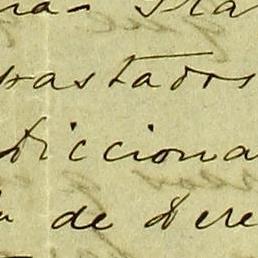 na- Tra
rastados
Dicciona
de Dere